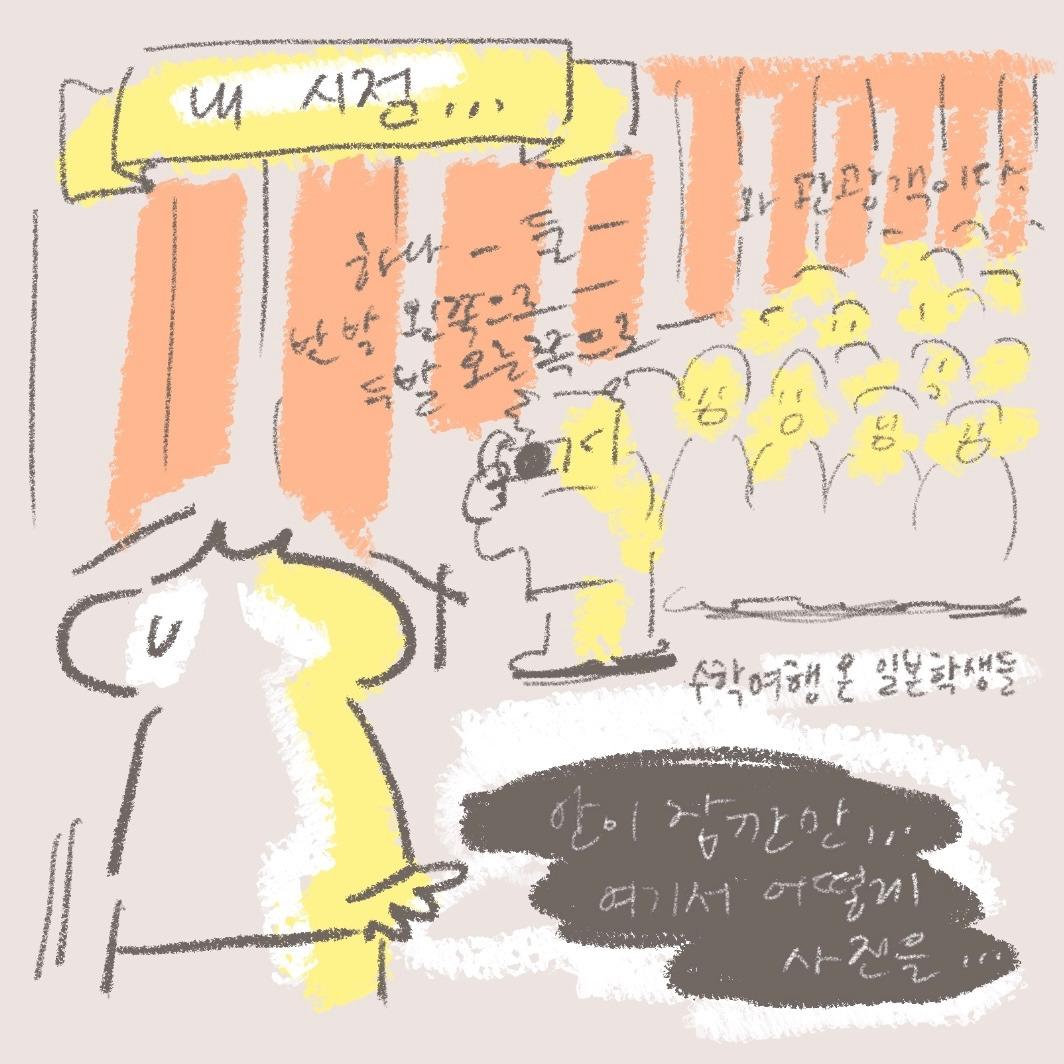 내 시점...
와 관광객이다.
하나 - 둘 -
반발 왼쪽으로 -
두발 오른쪽으로 -
수학여행 온 일본학생들
안이 잠깐만...
여기서 어떻게
사진을 ...